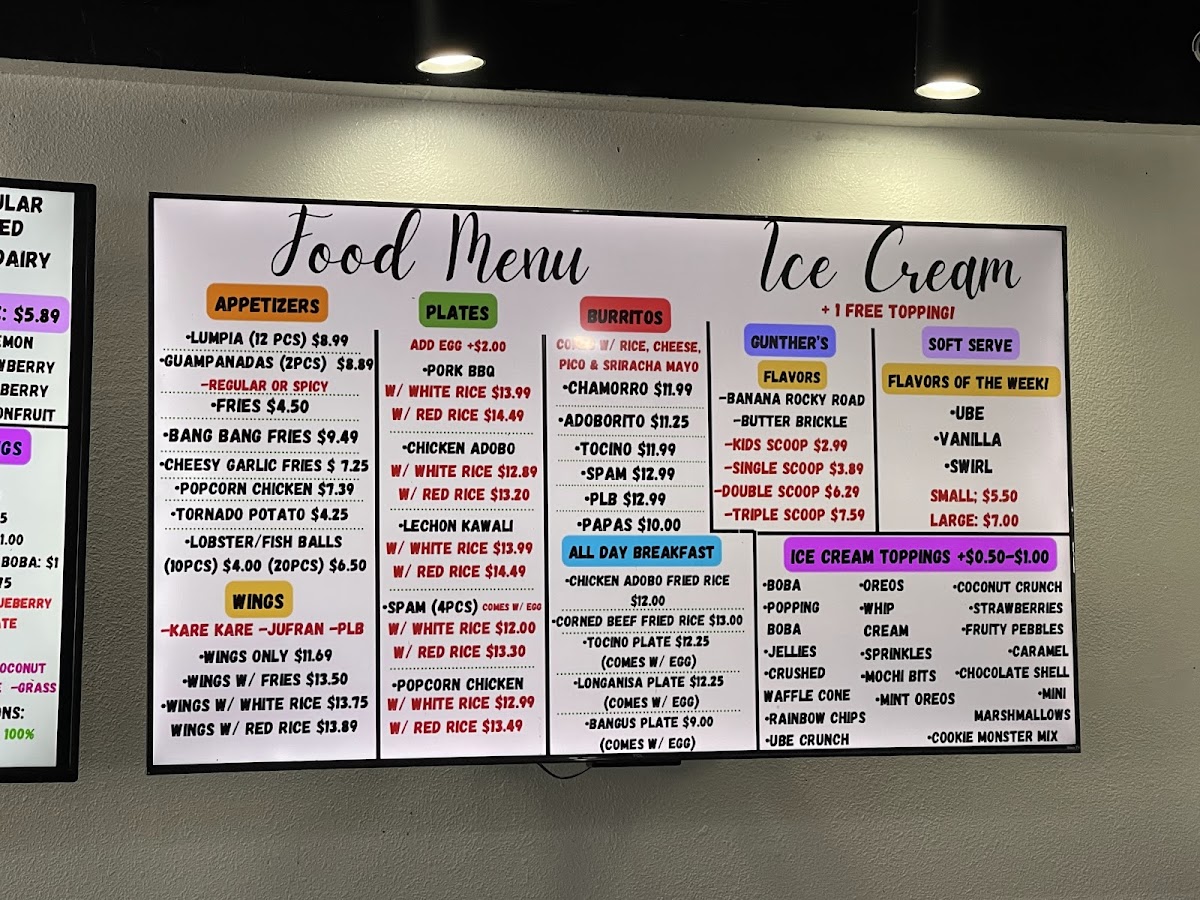 ULAR
ED
DAIRY
: $5.89
EMON
WBERRY
BERRY
ONFRUIT
GS
5
1.00
BOBA: $1
75
UEBERRY
ATE
OCONUT
-GRASS
ONS:
100%
Food Menu
APPETIZERS
•LUMPIA (12 PCS) $8.99
•GUAMPANADAS (2PCS) $8.89
-REGULAR OR SPICY
•FRIES $4.50
•BANG BANG FRIES $9.49
•CHEESY GARLIC FRIES $ 7.25
•POPCORN CHICKEN $7.39
•TORNADO POTATO $4.25
•LOBSTER/FISH BALLS
(10PCS) $4.00 (20PCS) $6.50
WINGS
-KARE KARE -JUFRAN -PLB
•WINGS ONLY $11.69
•WINGS W/ FRIES $13.50
•WINGS W/ WHITE RICE $13.75
WINGS W/ RED RICE $13.89
PLATES
ADD EGG +$2.00
•PORK BBQ
W/ WHITE RICE $13.99
W/ RED RICE $14.49
•CHICKEN ADOBO
W/ WHITE RICE $12.89
W/ RED RICE $13.20
•LECHON KAWALI
W/ WHITE RICE $13.99
W/ RED RICE $14.49
•SPAM (4PCS) COMES W/ EGG
W/ WHITE RICE $12.00
W/ RED RICE $13.30
•POPCORN CHICKEN
W/ WHITE RICE $12.99
W/ RED RICE $13.49
BURRITOS
COMES W/ RICE, CHEESE,
PICO & SRIRACHA MAYO
•CHAMORRO $11.99
•ADOBORITO $11.25
•TOCINO $11.99
•SPAM $12.99
•PLB $12.99
•PAPAS $10.00
ALL DAY BREAKFAST
•CHICKEN ADOBO FRIED RICE
$12.00
•CORNED BEEF FRIED RICE $13.00
•TOCINO PLATE $12.25
(COMES W/ EGG)
•LONGANISA PLATE $12.25
(COMES W/ EGG)
•BANGUS PLATE $9.00
(COMES W/ EGG)
Ice Cream
+ 1 FREE TOPPING!
GUNTHER'S
FLAVORS
-BANANA ROCKY ROAD
-BUTTER BRICKLE
-KIDS SCOOP $2.99
-SINGLE SCOOP $3.89
-DOUBLE SCOOP $6.29
-TRIPLE SCOOP $7.59
SOFT SERVE
FLAVORS OF THE WEEK!
•UBE
•VANILLA
•SWIRL
SMALL; $5.50
LARGE: $7.00
ICE CREAM TOPPINGS +$0.50-$1.00
•BOBA
•POPPING
BOBA
•JELLIES
•CRUSHED
WAFFLE CONE
•RAINBOW CHIPS
•UBE CRUNCH
•OREOS
•WHIP
CREAM
•SPRINKLES
•MOCHI BITS
•MINT OREOS
•COCONUT CRUNCH
•STRAWBERRIES
•FRUITY PEBBLES
•CARAMEL
•CHOCOLATE SHELL
•MINI
MARSHMALLOWS
•COOKIE MONSTER MIX